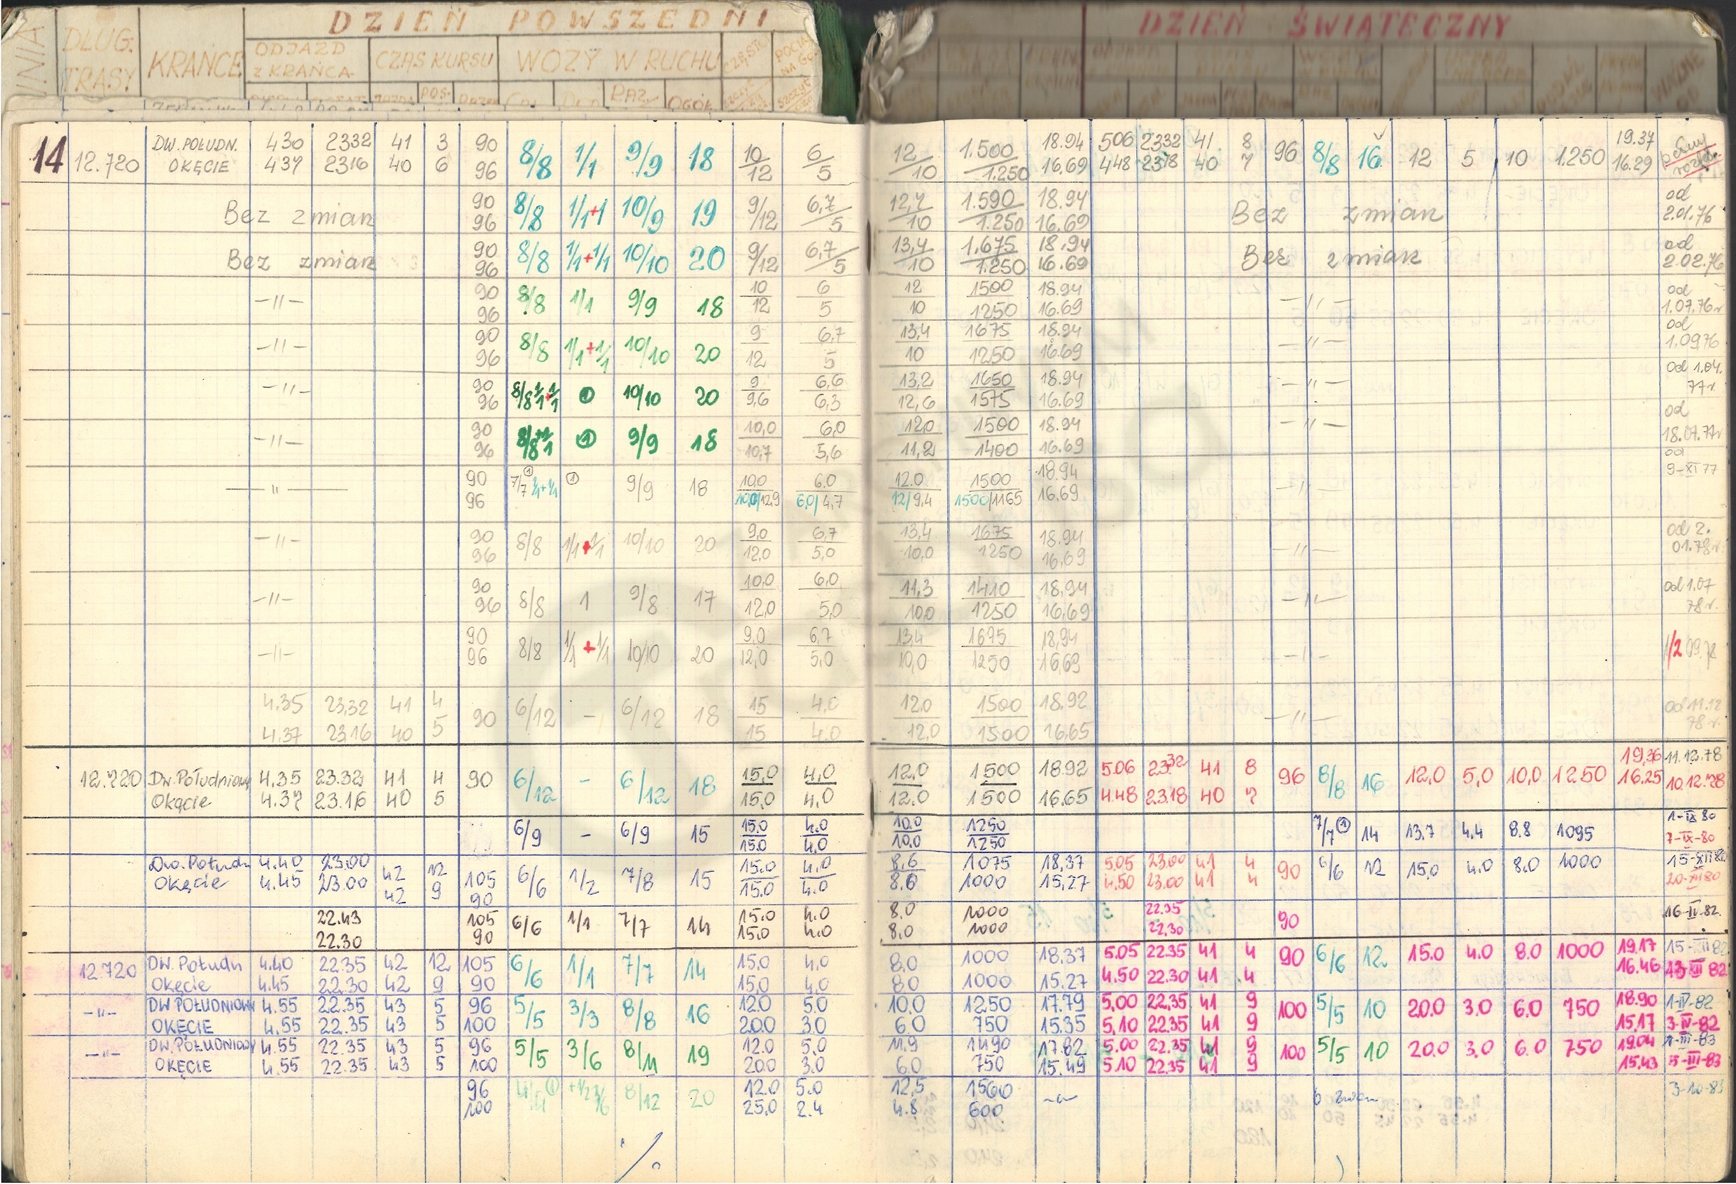 DZIEŃ POWSZEDNI
DZIEŃ ŚWIĄTECZNY
DŁUG. TRASY
KRAŃCE
ODJAZD Z KRAŃCA
CZAS KURSU
WOZY W RUCHU
14 12.720 DW. POŁUDN. 430 2332 41 3 90 8/8 1/1 9/9 18 10/12 6/5 12/10 1.500 18.94 506 2332 41 8 96 8/8 16 12 5 10 1.250 19.37
OKĘCIE 437 2316 40 6 96 1.250 16.69 448 2318 40 7 16.29
Bez zmian 90 96 8/8 1/1+1 10/9 19 9/12 6,7/5 12,7/10 1.590/1.250 18.94 16.69 Bez zmian od 2.01.76
Bez zmian 90 96 8/8 1/1+1/1 10/10 20 9/12 6,7/5 13,4/10 1.675/1.250 18.94 16.69 Bez zmian od 2.02.76
—〃— 90 96 8/8 1/1 9/9 18 10/12 6/5 12/10 1500/1250 18.94 16.69 —〃— od 1.07.76r
—〃— 90 96 8/8 1/1+1/1 10/10 20 9/12 6,7/5 13,4/10 1675/1250 18.94 16.69 —〃— od 1.09.76
—〃— 90 96 10/10 20 9/9,6 6,6/6,3 13,2/12,6 1650/1575 18.94 16.69 —〃— od 1.04.77r.
—〃— 90 96 9/9 18 10,0/10,7 6,0/5,6 12,0/11,2 1500/1400 18.94 16.69 —〃— od 18.07.77r.
—〃— 90 96 9/9 18 10,0 10,0/12,9 6.0 6,0/4,7 12.0 12/9,4 1500 1500/1165 18.94 16.69 —〃— od 9-XI 77
—〃— 90 96 8/8 1/1+1/1 10/10 20 9,0/12.0 6,7/5,0 13,4/10,0 1675/1250 18.94 16.69 —〃— od 2.01.78r.
—〃— 90 96 8/8 1 9/8 17 10,0/12,0 6,0/5,0 11,3/10,0 1410/1250 18,94 16,69 —〃— od 1.07 78r.
—〃— 90 96 8/8 1/1+1/1 10/10 20 9,0/12,0 6,7/5,0 13,4/10,0 1675/1250 18,94 16,69
4.35 23,32 41 4 90 6/12 – 6/12 18 15 4.0 12.0 1500 18.92 —〃— od 11.12 78r.
4.37 23.16 40 5 15 4.0 12.0 1500 16.65
12.720 Dw. Południowy 4.35 23.32 41 4 90 6/12 – 6/12 18 15,0 4,0 12,0 1500 18.92 5.06 23.32 41 8 96 8/8 16 12,0 5,0 10,0 1250 19,36 11.12.78
Okęcie 4.37 23.16 40 5 15,0 4,0 12.0 1500 16.65 4.48 23.18 40 7 16.25 10.12.78
6/9 – 6/9 15 15.0/15.0 4.0/4.0 10.0/10.0 1250/1250 14 13.7 4.4 8.8 1095 1-IX 80 7-IX-80
Dw. Połudn 4.40 23.00 42 12 105 6/6 1/2 7/8 15 15.0 4.0 8.6 1075 18,37 5.05 23.00 41 4 90 6/6 12 15,0 4.0 8.0 1000 15-XII 80
Okęcie 4.45 23.00 42 9 90 15.0 4.0 8.6 1000 15,27 4.50 23.00 41 4 20-XII 80
22.43 105 6/6 1/1 7/7 14 15.0 4.0 8.0 1000 22.35 90 16-II.82.
22.30 90 15.0 4.0 8.0 1000 22.30
12.720 Dw. Połudn 4.40 22.35 42 12 105 6/6 1/1 7/7 14 15,0 4,0 8.0 1000 18.37 5.05 22.35 41 4 90 6/6 12 15.0 4.0 8.0 1000 19.17
Okęcie 4.45 22.30 42 9 90 15,0 4.0 8.0 1000 15.27 4.50 22.30 41 4 16.46
—〃— DW POŁUDNIOWY 4.55 22.35 43 5 96 5/5 3/3 8/8 16 12.0 5.0 10.0 1250 17.79 5,00 22,35 41 9 100 5/5 10 20.0 3.0 6.0 750 18.90 1-IV-82
OKĘCIE 4.55 22.35 43 5 100 20.0 3.0 6.0 750 15.35 5,10 22.35 41 9 15.17 3-IV-82
—〃— DW. POŁUDNIOWY 4.55 22.35 43 5 96 5/5 3/6 8/11 19 12.0 5.0 11,9 1490 17.82 5.00 22.35 41 9 100 5/5 10 20.0 3.0 6.0 750 19.04
OKĘCIE 4.55 22.35 43 5 100 20.0 3.0 6.0 750 15.49 5.10 22.35 41 9 15.43
96 8/12 20 12.0 5.0 12,5 1560
100 25,0 2.4 4.8 600